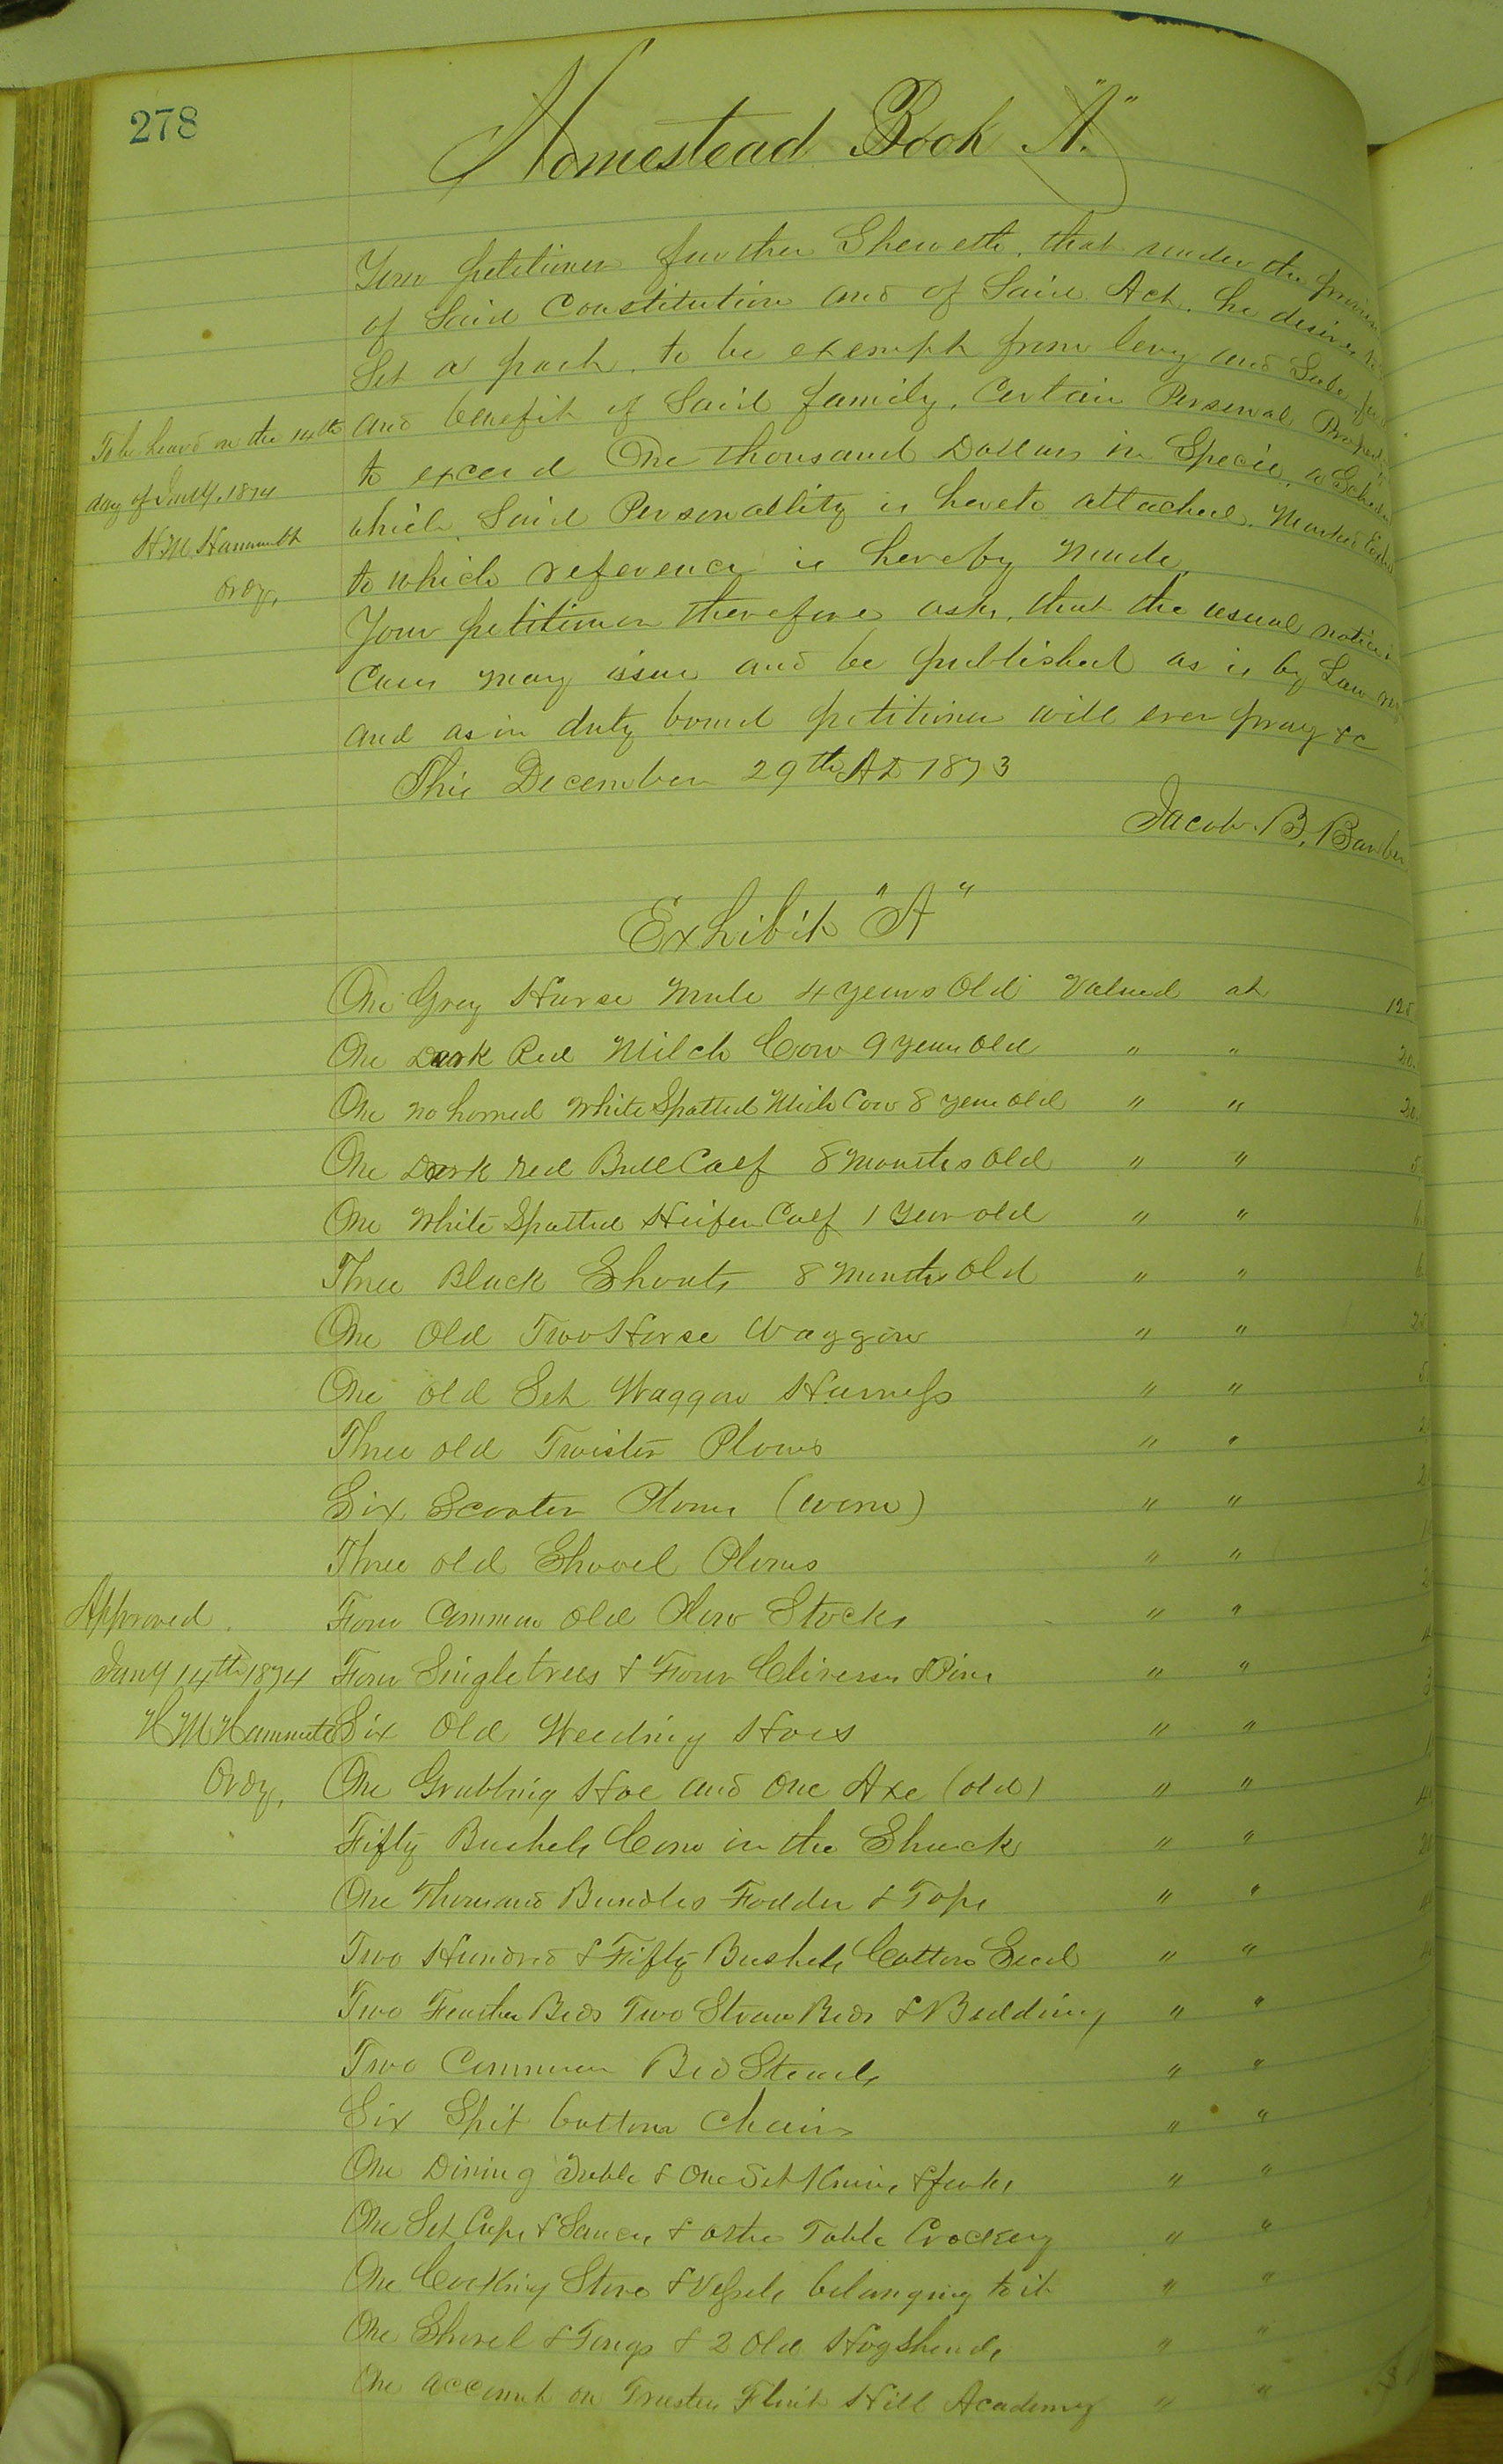 278
Homestead Book "A."
Your petitioner further Sheweth, that under the
of Said Constitution and of Said Act, he desires to
Set a part, to be exempt from levy and Sale, for
and benefit of Said family, Certain Personal
to exceed One thousand Dollars in Specie, a
which Said Personallity is hereto attached, Marked
to which reference is hereby Made.
Your petitioner therefore asks, that the usual notice in
Cases may issue and be published as is by Law
and as in duty bound petitioner will ever pray &c
This December 29th AD 1873
Jacob. B. Barber
To be heard on the 14th
day of Jany, 1874
H M Hammett
Ordy,
Exhibit "A"
One Grey Horse Mule 4 years Old Valued at 125
One Dark Red Milch Cow 9 years Old " " 20.
One no horned White Spotted Milch Cow 8 years old " " 20.
One Dark red Bull Calf 8 Months Old " " 5
One White Spotted Heifer Calf 1 Year old " "
Three Black Shoats 8 Months Old " "
One Old Two Horse Waggon " "
One old Set Waggon Harness " " 5
Three old Twister Plows " "
Six Scooter Plows (worn) " "
Three old Shovel Plows " "
Four Common Old Plow Stocks " "
Four Singletrees & Four Clivesses & Pins " "
Six Old Weeding Hoes " "
One Grubbing Hoe and One Axe (old) " "
Fifty Bushels Corn in the Shuck " "
One Thousand Bundles Fodder & Tops " "
Two Hundred & Fifty Bushels Cotton Seed " "
Two Feather Beds Two Straw Beds & Bedding " "
Two Common Bed Steads " "
Six Split bottom Chairs " "
One Dining Table & One Set Knives & forks " "
One Set Cups & Saucers & other Table Crockery " "
One Cooking Stove & Vessels belonging to it " "
One Shovel & Tongs & 2 Old Hogsheads " "
One account on Trustees Flint Hill Academy " "
Approved.
Jany 14th 1874
H M Hammett
Ordy,